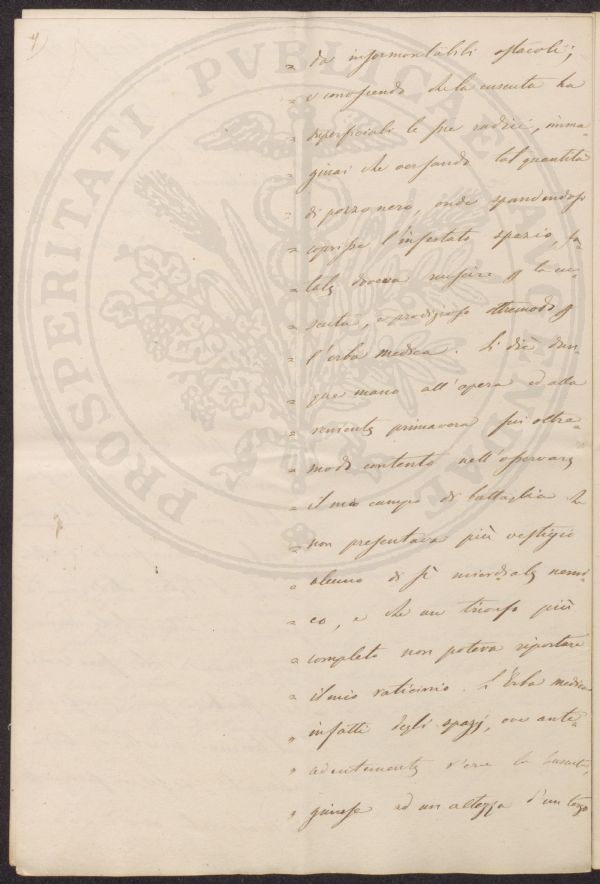 4)
= da insormontabili ostacoli;
= e conoscendo che la cuscuta ha
= superficiali le sue radici, imma-
= ginai che versando tal quantità
= di pozzo nero, onde spandendosi
= coprisse l'infestato spazio, fa-
= tale doveva riuscire p la cu-
= scuta, e prodigioso oltremodo p
= l'erba medica. Si diè dun-
= que mano all'opera ed alla
= veniente primavera fui oltre-
= modo contento nell'osservare
= il mio campo di battaglia che
= non presentava più vestigio
= alcuno di sì micidiale nemi-
= co, e che un trionfo più
= completo non poteva riportare
= il mio raticinio. L'Erba medica
" infatti degli spazj, ove ante-
" cedentemente v'era la Cuscuta,
" giunse ad un altezza d'un terzo
PROSPERITATI PVBLICAE AVGENDAE